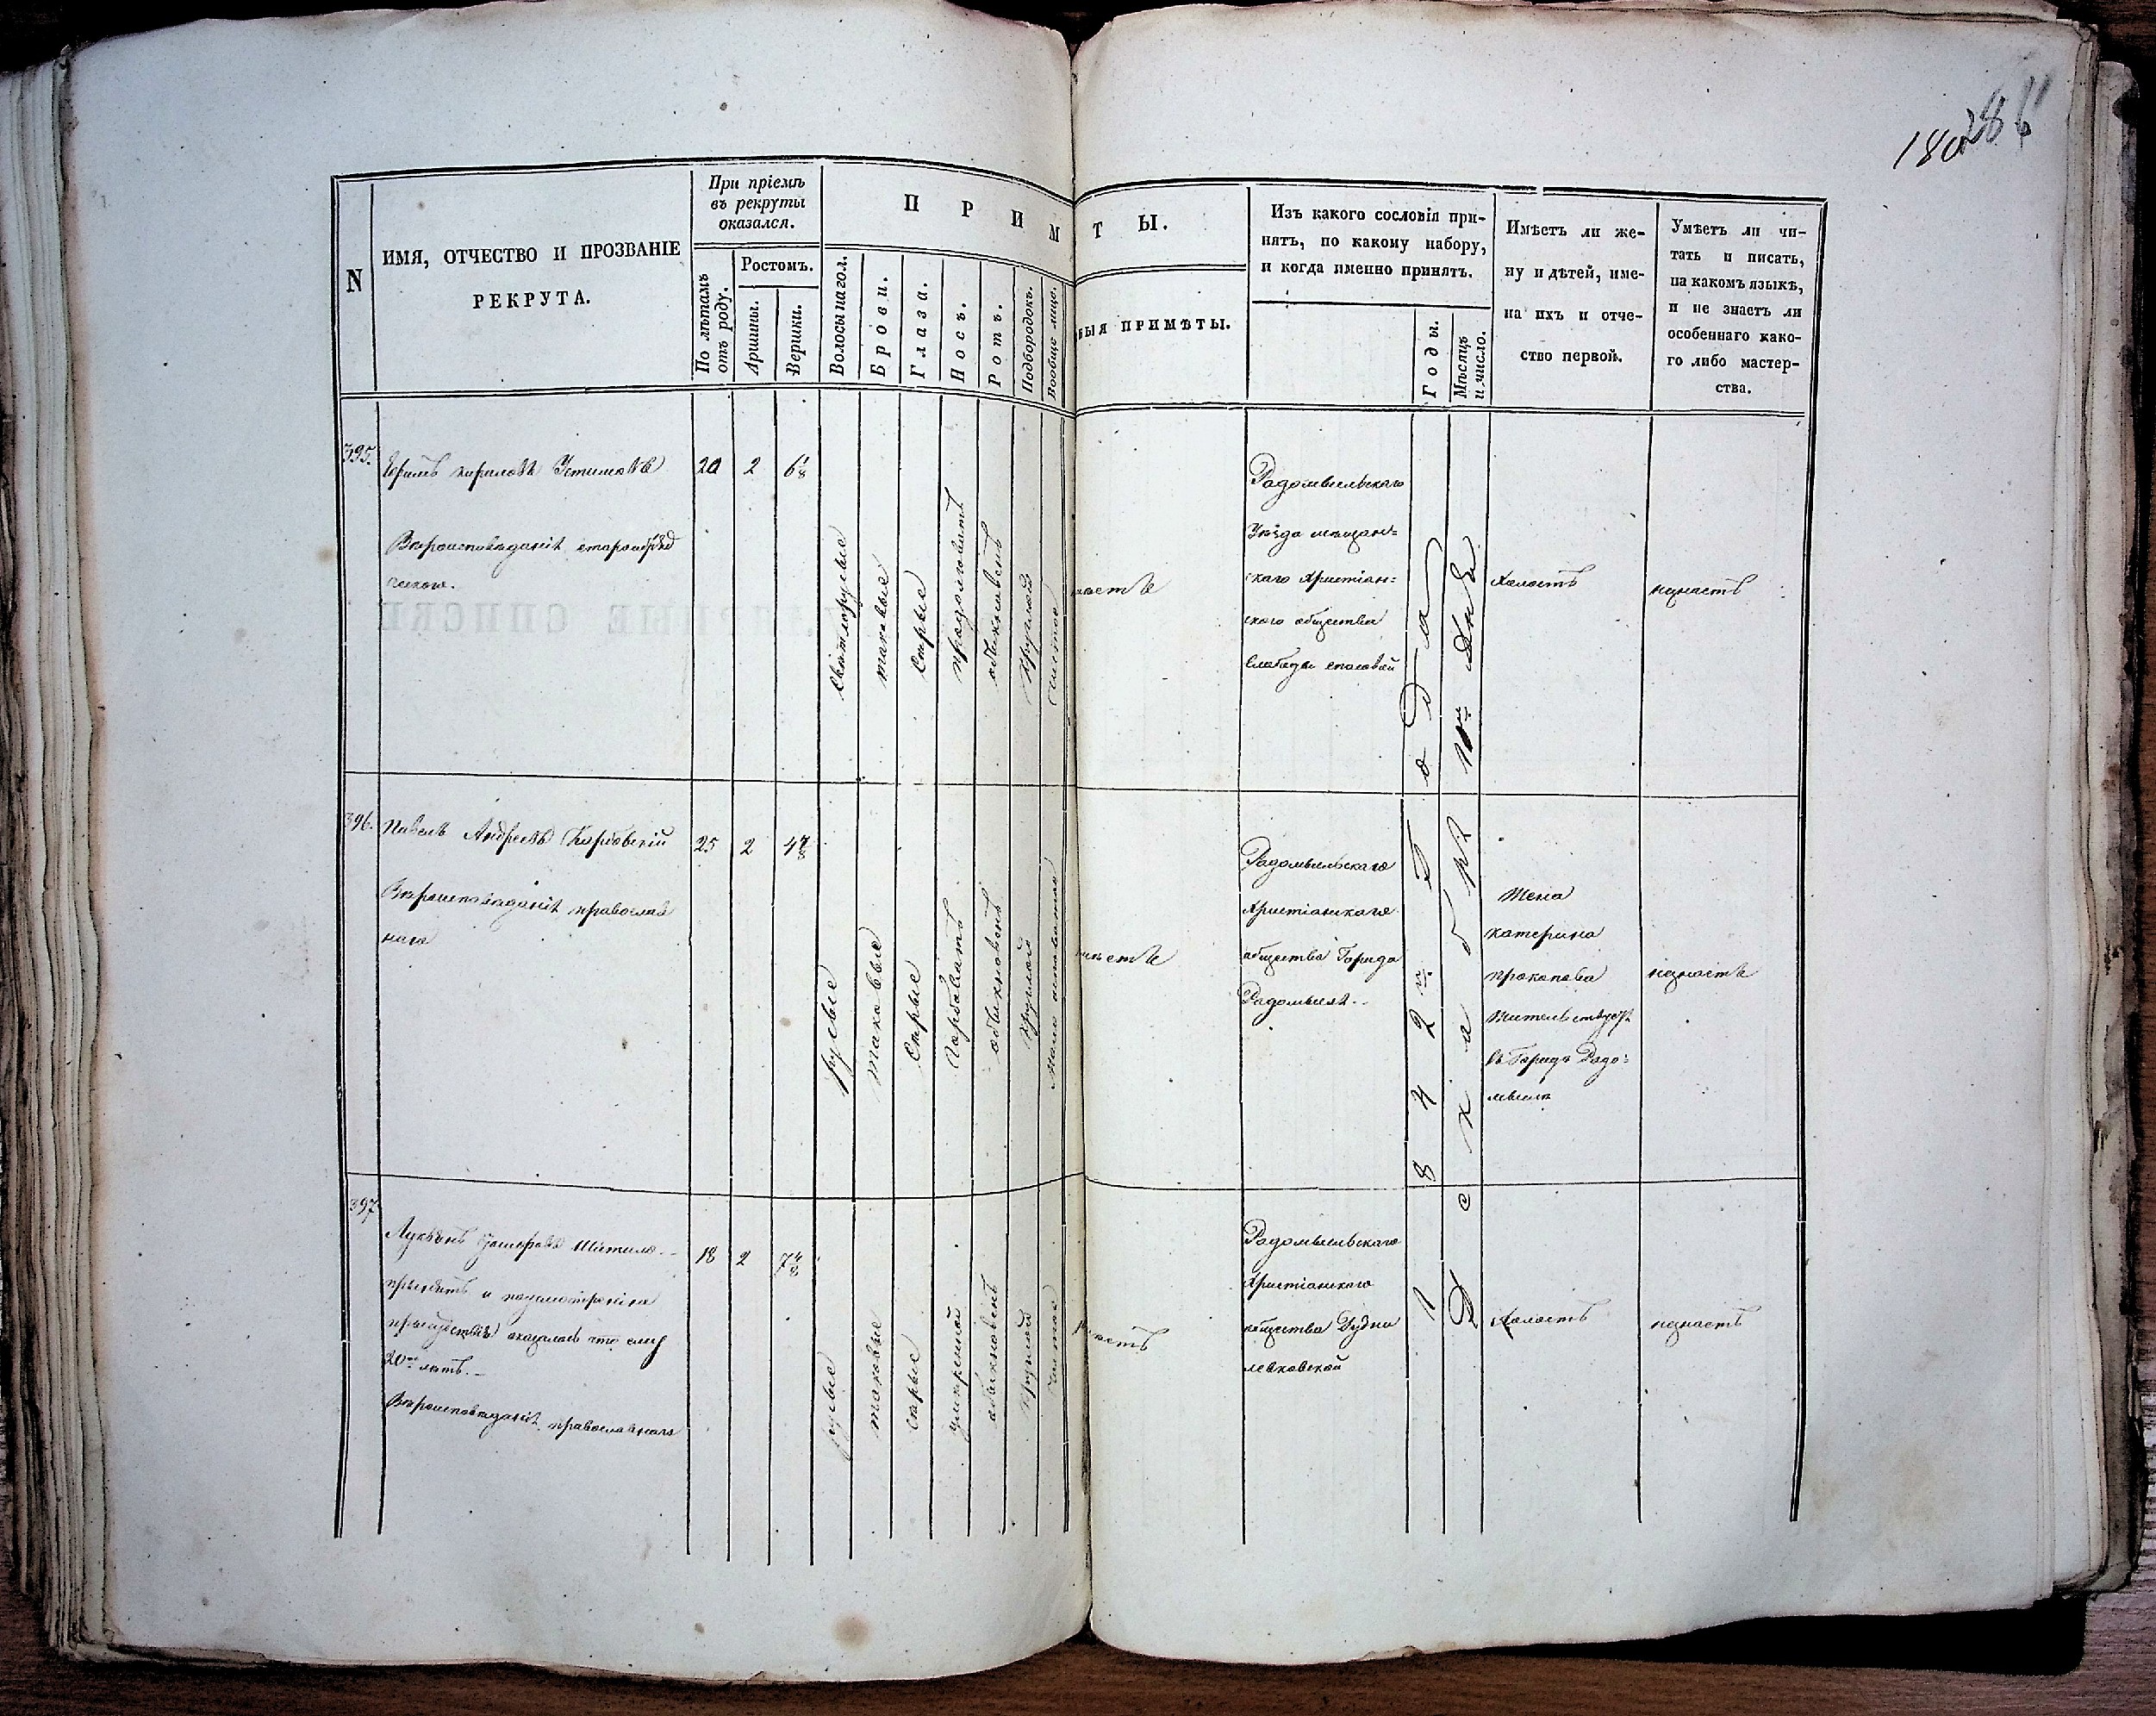 180
286
N
ИМЯ, ОТЧЕСТВО И ПРОЗВАНІЕ
РЕКРУТА.
При пріемѣ
въ рекруты
оказался.
По лѣтамъ
отъ роду.
Ростомъ.
Аршины.
Вершки.
ПРИМ
Волосы на гол.
Брови.
Глаза.
Носъ.
Ротъ.
Подбородокъ.
Вообще лице.
ТЫ.
БЫЯ ПРИМѢТЫ.
Изъ какого сословія при-
нятъ, по какому набору,
и когда именно принятъ.
Годы.
Мѣсяцъ
и число.
Имѣетъ ли же-
ну и дѣтей, име-
на ихъ и отче-
ство первой.
Умѣетъ ли чи-
тать и писать,
на какомъ языкѣ,
и не знаетъ ли
особеннаго како-
го либо мастер-
ства.
395.
Кириловъ Устиновъ
Вѣроисповѣданія старообряд
ческого.
20
2
6 1/8
Свѣтлорусые
таковые
Сѣрые
продолговатъ
обыкновенъ
круглой
чистое
Радомысльскаго
Уѣзда мѣщан=
скаго Христіан=
скаго общества
Слободы
Холостъ
незнаетъ
396.
Павелъ Андреевъ
Вѣроисповѣданія православ
наго
25
2
4 7/8
русые
таковые
Сѣрые
Горбоватъ
обыкновенъ
круглой
Радомысльскаго
Христіанскаго
общества Города
Радомысля.
Жена
катерина
прокопова
Жительствуетъ
въ Городѣ Радо=
мыслѣ
незнаетъ
397
Лукьянъ
20 лѣтъ.
Вѣроисповѣданія православнаго
18
2
русые
таковые
сѣрые
умѣренной
обыкновенъ
круглой
чистое
Радомысльскаго
Христіанскаго
общества Рудни
левковской
Холостъ
незнаетъ
1842го Года
Декабря 10го дня